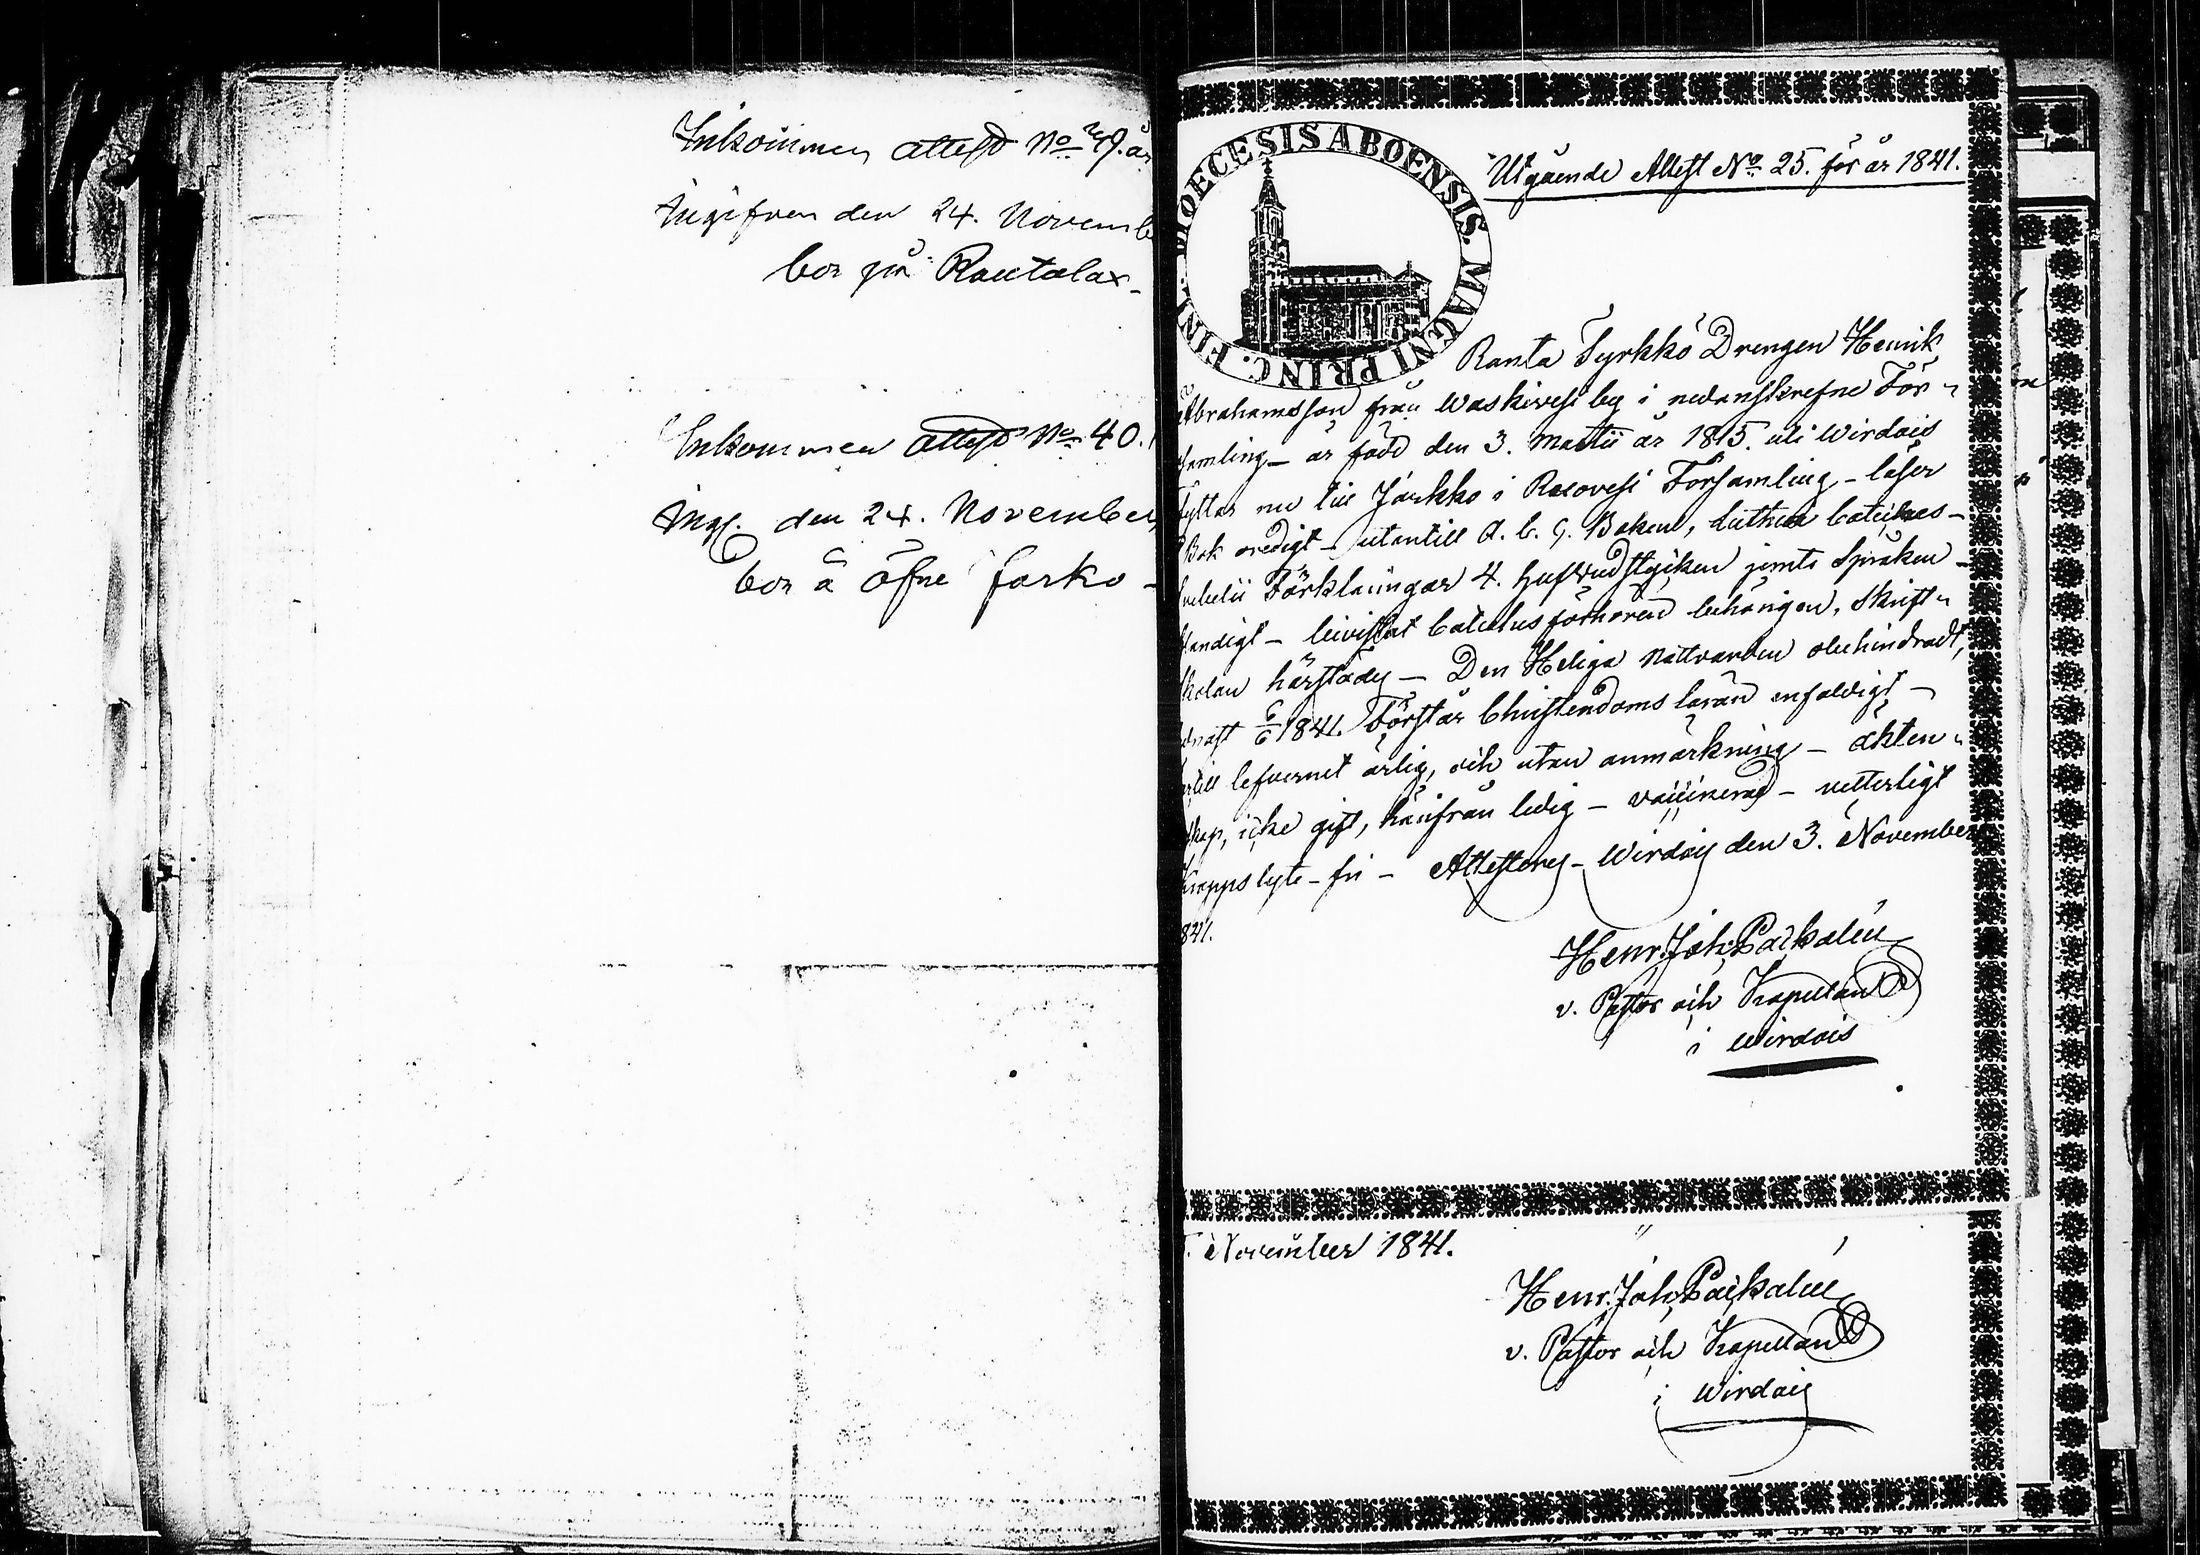 Inkommen attest No 39. år
Ingifven den 24. Novemb
bor på Rautalax -
Inkommen attest No 40.
Ingf. den 24. November
bor å Öfre Jarko -
DIOECESIS ABOENSIS. MAGNI PRINC. FINL.
Utgående Attest No 25. för år 1841.
Ranta Tyrkkö Drengen Henrik
Abrahamsson från Waskivesi by i nedanskrefne För-
samling - är född den 3. Martii år 1815. uti Wirdois
flyttar nu till Jarkko i Ruovesi Församling - läser
Bok oredigt - utantill A. b. c. Boken, Lutheri Cateches-
Svebelii Förklaringar 4. hufvudstycken jemte Språken
standigt - bevistat förhören behörigen, Skrift-
skolan härstädes - Den Heliga Nattvarden obehindradt,
senast 6/6 1841. Förstår Christendoms läran enfaldigt -
till lefvernet ärlig, och utan anmärkning - äkten-
skap, icke gift, härifrån ledig - vaccinerad - vetterligt
kropps lyte - fri - Attesteras - Wirdois den 3. November
841.
Henr. Joh. Paekalén
v. Pastor och Kapellan
i Wirdois
November 1841.
Henr. Joh. Paekalén
v. Pastor och Kapellan
i Wirdois